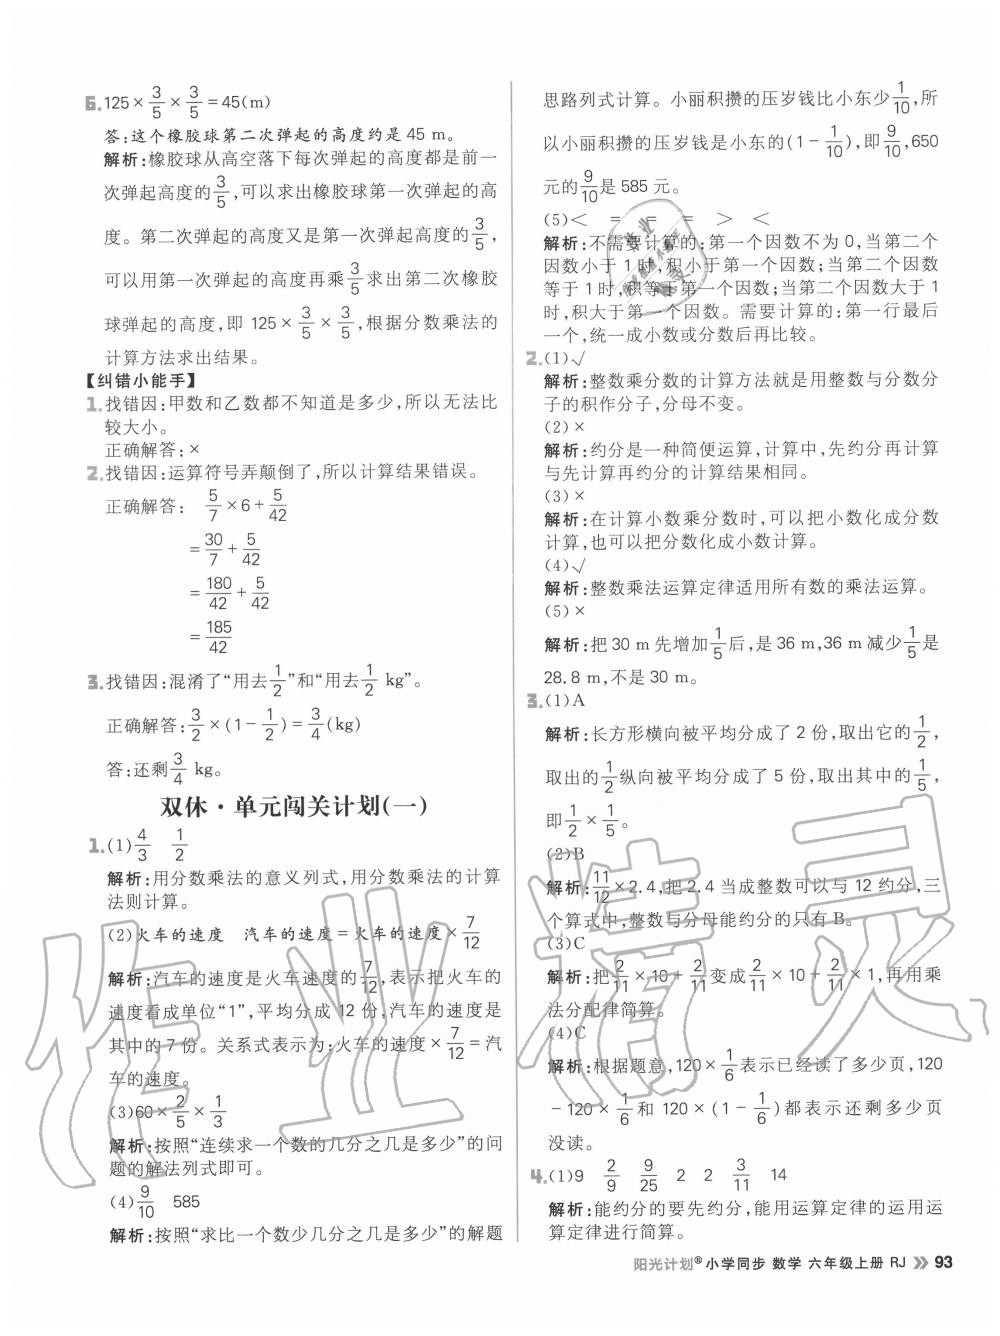 6. 125×3/5×3/5=45(m)
答:这个橡胶球第二次弹起的高度约是 45 m。
解析:橡胶球从高空落下每次弹起的高度都是前一
次弹起高度的3/5,可以求出橡胶球第一次弹起的高
度。第二次弹起的高度又是第一次弹起高度的3/5,
可以用第一次弹起的高度再乘3/5求出第二次橡胶
球弹起的高度,即 125×3/5×3/5,根据分数乘法的
计算方法求出结果。
【纠错小能手】
1. 找错因:甲数和乙数都不知道是多少,所以无法比
较大小。
正确解答:×
2. 找错因:运算符号弄颠倒了,所以计算结果错误。
正确解答: 5/7×6+5/42
=30/7+5/42
=180/42+5/42
=185/42
3. 找错因:混淆了“用去1/2”和“用去1/2 kg”。
正确解答:3/2×(1-1/2)=3/4(kg)
答:还剩3/4 kg。
双休·单元闯关计划(一)
1. (1)4/3 1/2
解析:用分数乘法的意义列式,用分数乘法的计算
法则计算。
(2)火车的速度 汽车的速度=火车的速度×7/12
解析:汽车的速度是火车速度的7/12,表示把火车的
速度看成单位“1”,平均分成 12 份,汽车的速度是
其中的 7 份。关系式表示为:火车的速度×7/12=汽
车的速度。
(3)60×2/5×1/3
解析:按照“连续求一个数的几分之几是多少”的问
题的解法列式即可。
(4)9/10 585
解析:按照“求比一个数少几分之几是多少”的解题
思路列式计算。小丽积攒的压岁钱比小东少1/10,所
以小丽积攒的压岁钱是小东的(1-1/10),即9/10,650
元的9/10是 585 元。
(5)< = = = > <
解析:不需要计算的:第一个因数不为 0,当第二个
因数小于 1 时,积小于第一个因数;当第二个因数
等于 1 时,积等于第一个因数;当第二个因数大于 1
时,积大于第一个因数。需要计算的:第一行最后
一个,统一成小数或分数后再比较。
2. (1)√
解析:整数乘分数的计算方法就是用整数与分数分
子的积作分子,分母不变。
(2)×
解析:约分是一种简便运算,计算中,先约分再计算
与先计算再约分的计算结果相同。
(3)×
解析:在计算小数乘分数时,可以把小数化成分数
计算,也可以把分数化成小数计算。
(4)√
解析:整数乘法运算定律适用所有数的乘法运算。
(5)×
解析:把 30 m 先增加1/5后,是 36 m,36 m 减少1/5是
28.8 m,不是 30 m。
3. (1)A
解析:长方形横向被平均分成了 2 份,取出它的1/2,
取出的1/2纵向被平均分成了 5 份,取出其中的1/5,
即1/2×1/5。
(2)B
解析:11/12×2.4,把 2.4 当成整数可以与 12 约分,三
个算式中,整数与分母能约分的只有 B。
(3)C
解析:把2/11×10+2/11变成2/11×10+2/11×1,再用乘
法分配律简算。
(4)C
解析:根据题意,120×1/6表示已经读了多少页,120
-120×1/6和 120×(1-1/6)都表示还剩多少页
没读。
4. (1)9 2/9 9/25 2 2 3/11 14
解析:能约分的要先约分,能用运算定律的运用运
算定律进行简算。
阳光计划®小学同步 数学 六年级上册 RJ 93
作业精灵